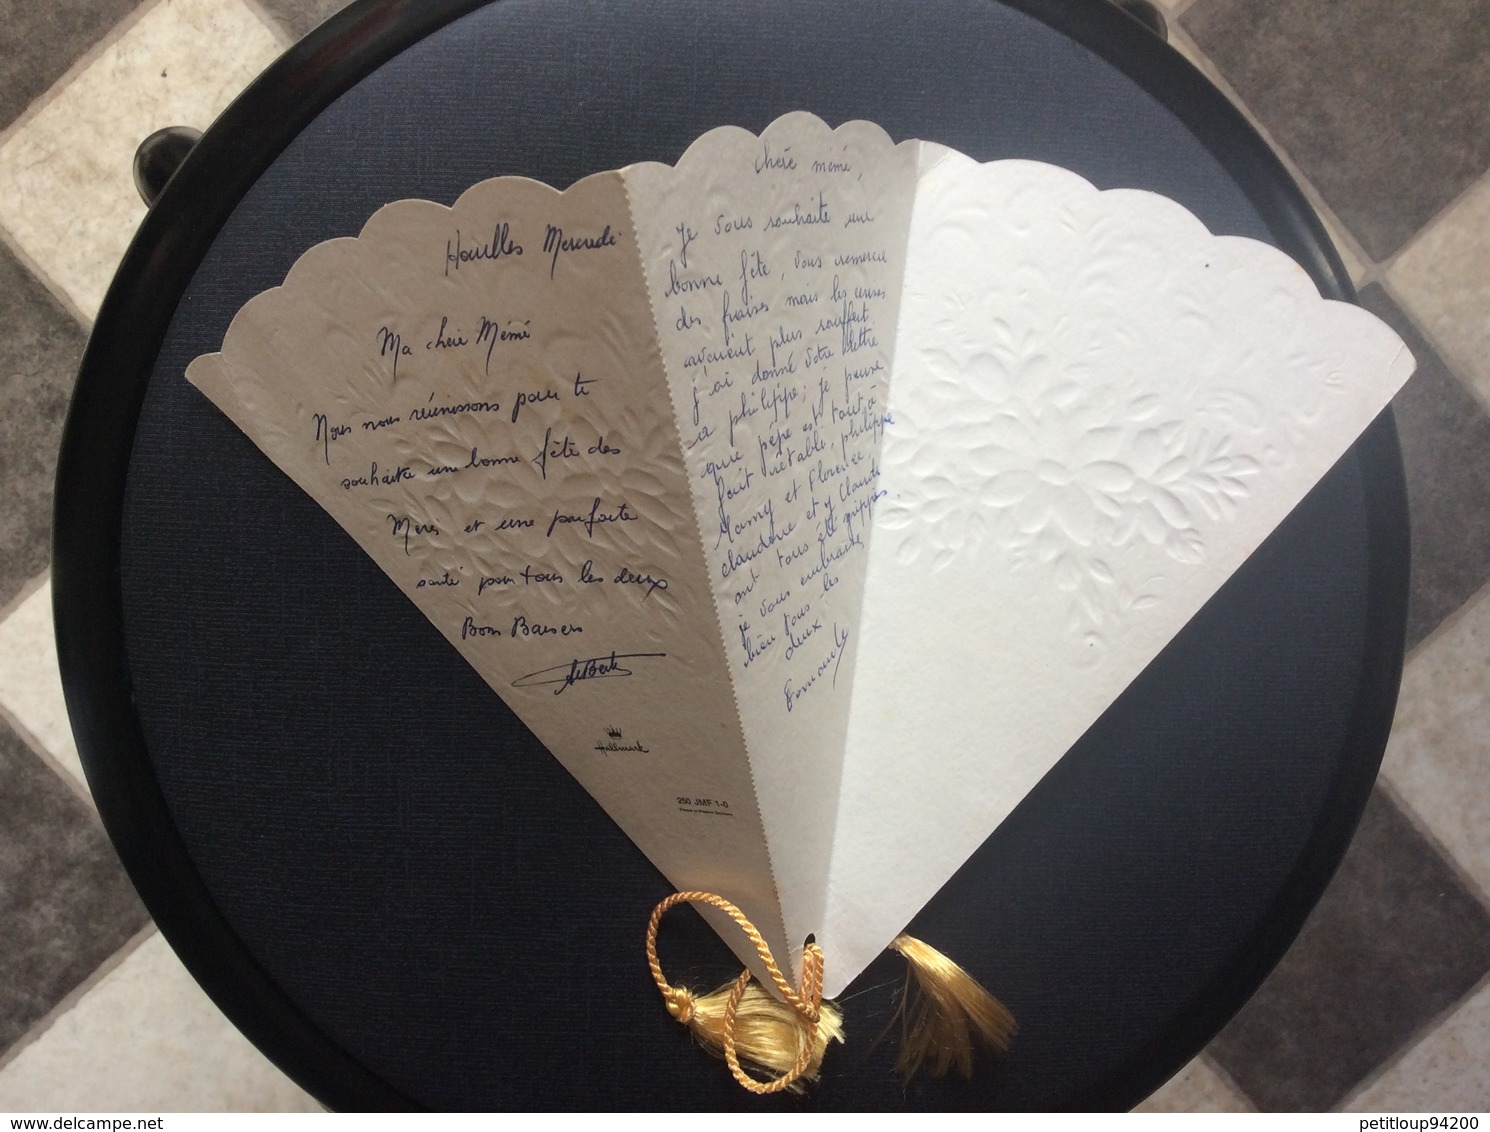 Houilles Mercredi
Ma chère Mémé
Nous nous réunissons pour te
souhaiter une bonne fête des
Mères et une parfaite
santé pour tous les deux
Bons Baisers
Hallmark
250 JMF 1-0
chère mémé,
je vous souhaite une
bonne fête, vous remercie
des fraises mais les cerises
avaient plus souffert
j'ai donné votre lettre
a philippe; je pense
que pépé est tout à
fait rétabli, philippe
Mamy et Florence
claudine et y Claude
ont tous été grippés.
je vous embrasse
bien tous les
deux
www.delcampe.net
petitloup94200